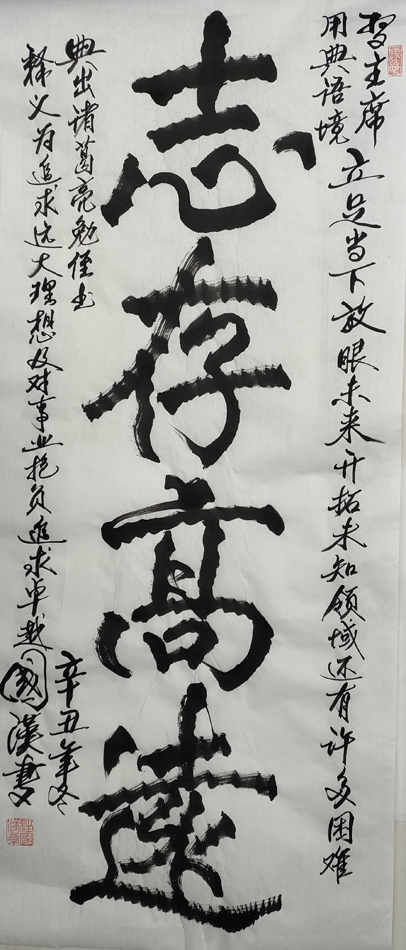 习主席
用典语境
立足当下放眼未来开拓未知领域还有许多困难
志存高遠
典出诸葛亮勉侄书
释义为追求远大理想及对事业抱负追求卓越
辛丑年冬
國漢书